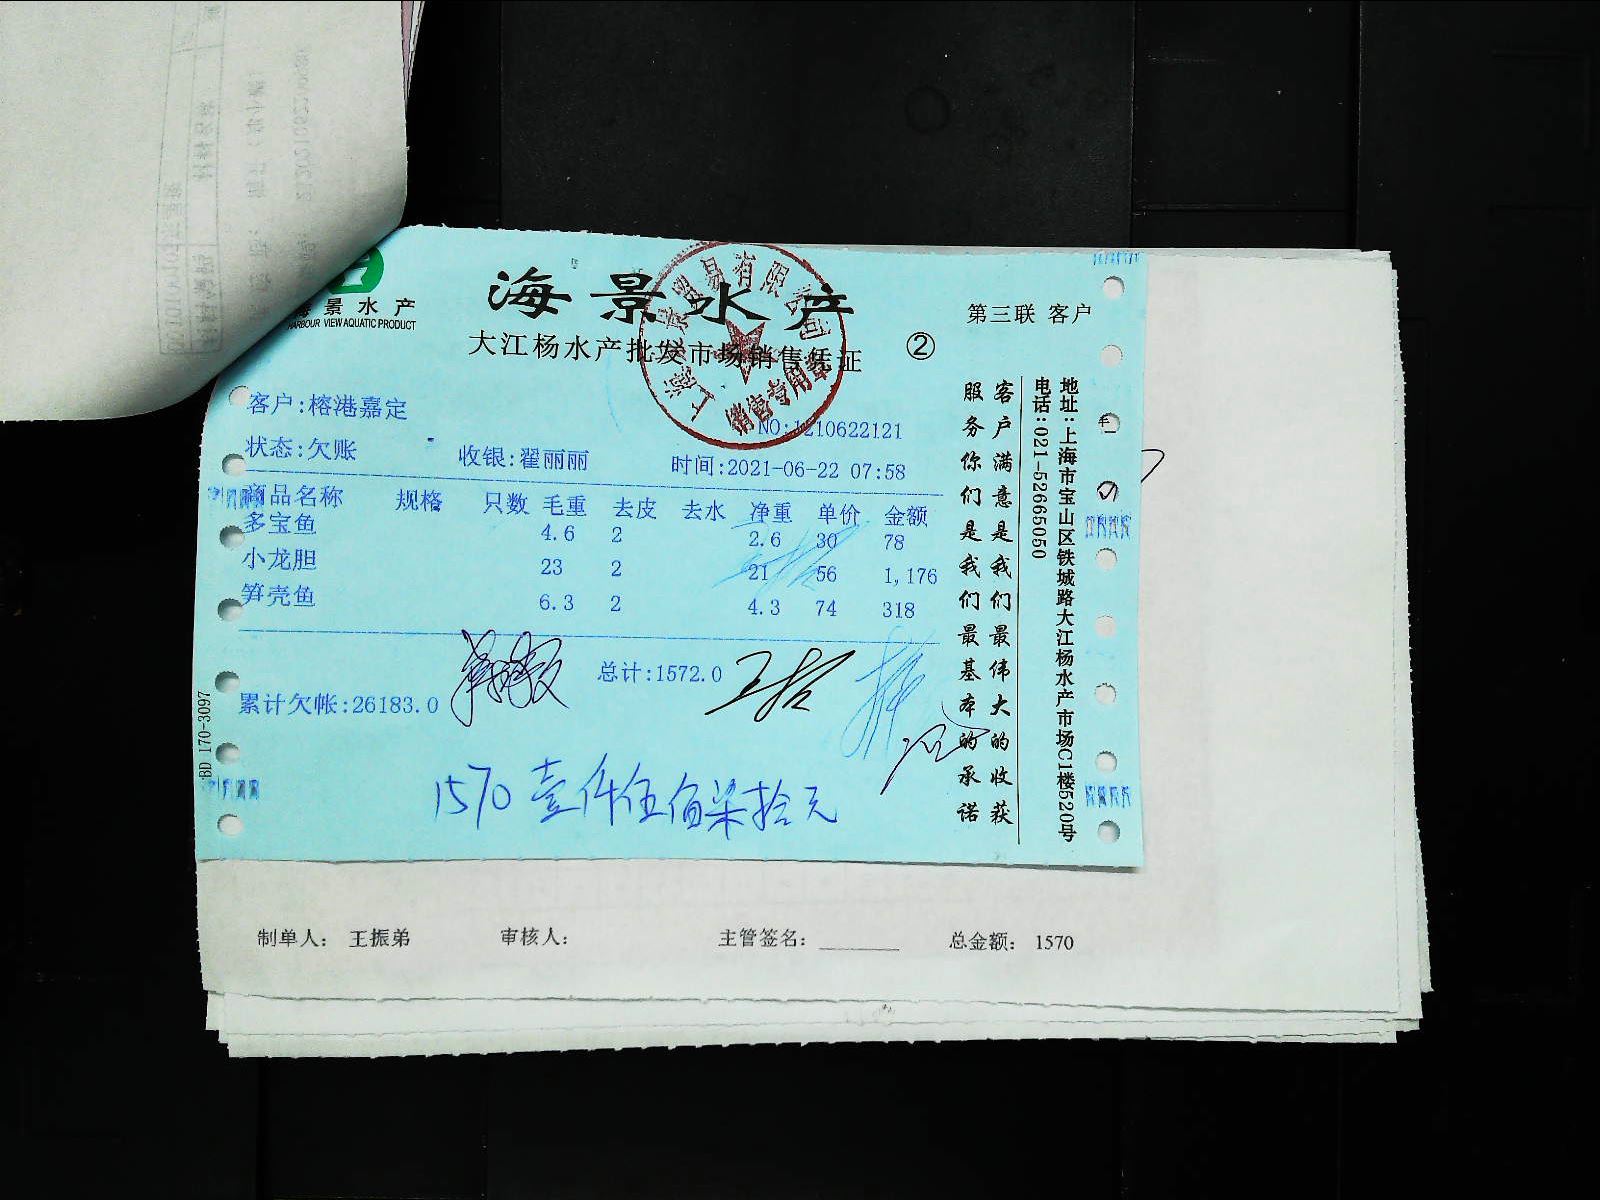 海景水产
景水产
HARBOUR VIEW AQUATIC PRODUCT
第三联 客户
大江杨水产批发市场销售凭证 ②
贸易有限公司
销售专用章
客户:榕港嘉定
NO:1210622121
状态:欠账 收银:翟丽丽 时间:2021-06-22 07:58
商品名称 规格 只数 毛重 去皮 去水 净重 单价 金额
多宝鱼 4.6 2 2.6 30 78
小龙胆 23 2 21 56 1,176
笋壳鱼 6.3 2 4.3 74 318
总计:1572.0
累计欠帐:26183.0
1570 壹仟伍佰柒拾元
BD 170-3097
客户满意是我们最伟大的收获
服务你们是我们最基本的承诺
地址:上海市宝山区铁城路大江杨水产市场C1楼520号
电话:021-52665050
制单人: 王振弟 审核人: 主管签名: 总金额: 1570